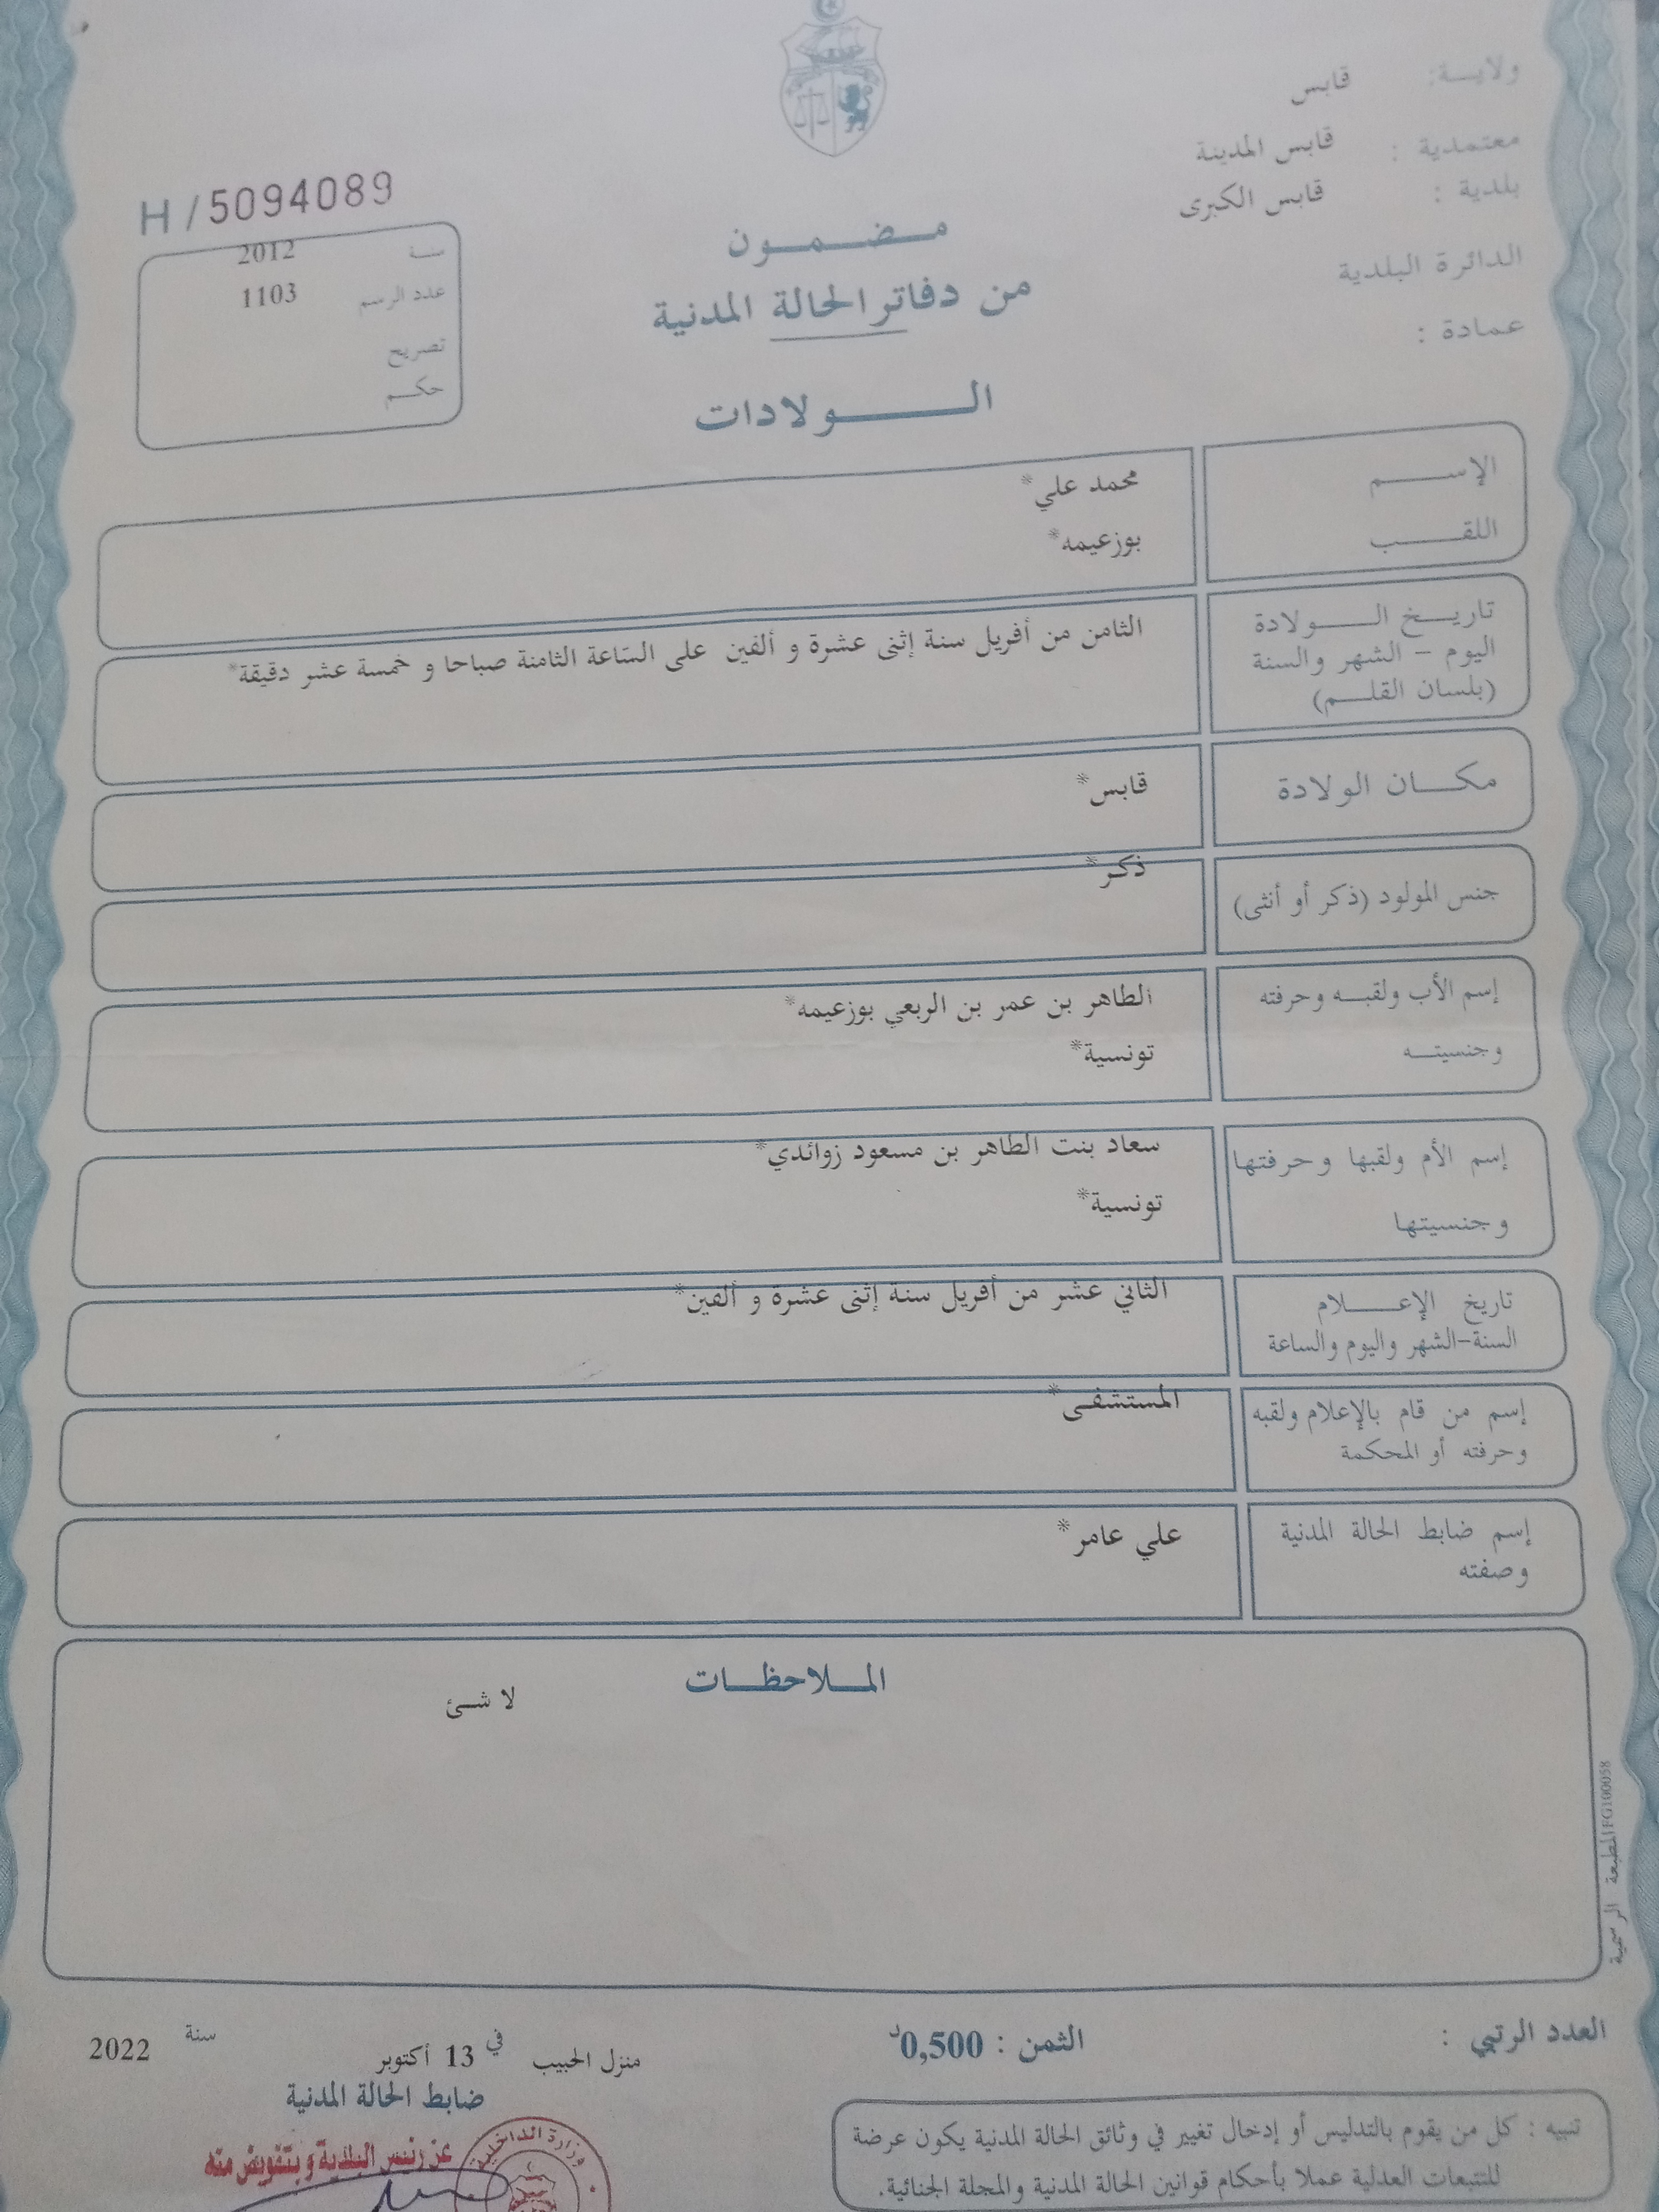 ولايـــة: قابس
معتمدية : قابس المدينة
بلدية : قابس الكبرى
الدائرة البلدية
عمادة :
H / 5094089
سنة 2012
عدد الرسم 1103
تصريح
حكم
مـضـمـون
من دفاتر الحالة المدنية
الـولادات
الإســم محمد علي*
اللقــب بوزعيمه*
تاريـخ الـولادة
اليوم - الشهر والسنة
(بلسان القلـم)
الثامن من أفريل سنة إثنى عشرة و ألفين على السّاعة الثامنة صباحا و خمسة عشر دقيقة*
مكـان الولادة قابس*
جنس المولود (ذكر أو أنثى) ذكر*
إسم الأب ولقبـه وحرفته الطاهر بن عمر بن الربعي بوزعيمه*
وجنسيتـه تونسية*
إسم الأم ولقبها وحرفتها سعاد بنت الطاهر بن مسعود زوائدي*
وجنسيتها تونسية*
تاريخ الإعـلام الثاني عشر من أفريل سنة إثنى عشرة و ألفين*
السنة-الشهر واليوم والساعة
إسم من قام بالإعلام ولقبه المستشفى*
وحرفته أو المحكمة
إسم ضابط الحالة المدنية علي عامر*
وصفته
المـلاحظـات
لا شئ
المطبعة الرسمية FG100058
العدد الرتبي :
الثمن : 0,500د
منزل الحبيب في 13 أكتوبر سنة 2022
ضابط الحالة المدنية
عن رئيس البلدية و بتفويض منه
وزارة الداخلية
تنبيه : كل من يقوم بالتدليس أو إدخال تغيير في وثائق الحالة المدنية يكون عرضة
للتتبعات العدلية عملا بأحكام قوانين الحالة المدنية والمجلة الجنائية.